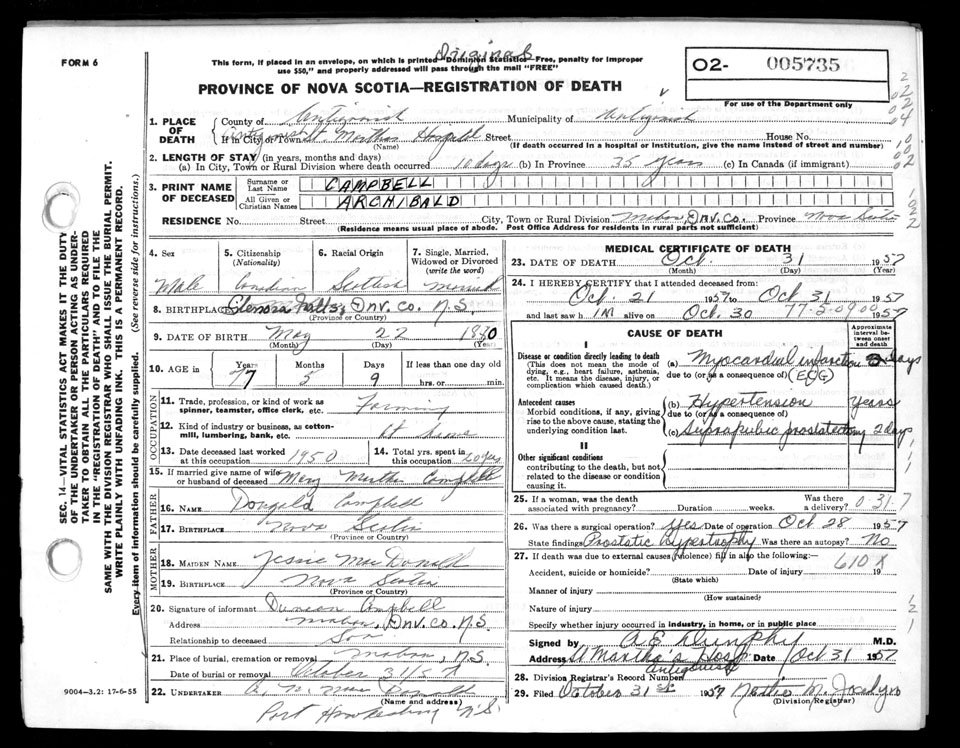 FORM 6
Original
This form, if placed in an envelope, on which is printed "Dominion Statistics—Free, penalty for improper
use $50," and properly addressed will pass through the mail "FREE"
O2- 005735
For use of the Department only
PROVINCE OF NOVA SCOTIA—REGISTRATION OF DEATH
1. PLACE OF DEATH County of Antigonish Municipality of Antigonish
If in City or Town Antigonish St. Marthas Hospital Street House No.
(Name) (If death occurred in a hospital or institution, give the name instead of street and number)
2. LENGTH OF STAY (in years, months and days)
(a) In City, Town or Rural Division where death occurred 10 days (b) In Province 35 years (c) In Canada (if immigrant)
3. PRINT NAME OF DECEASED Surname or Last Name CAMPBELL
All Given or Christian Names ARCHIBALD
RESIDENCE No. Street City, Town or Rural Division Mabou, Inv. Co. Province Nova Scotia
(Residence means usual place of abode. Post Office Address for residents in rural parts not sufficient)
4. Sex 5. Citizenship (Nationality) 6. Racial Origin 7. Single, Married, Widowed or Divorced (write the word)
Male Canadian Scottish Married
8. BIRTHPLACE Glenora Falls, Inv. Co. N.S.
(Province or Country)
9. DATE OF BIRTH May 22 1880
(Month) (Day) (Year)
10. AGE in Years Months Days If less than one day old
77 5 9 hrs. or min.
OCCUPATION
11. Trade, profession, or kind of work as spinner, teamster, office clerk, etc. Farming
12. Kind of industry or business, as cotton-mill, lumbering, bank, etc. At home
13. Date deceased last worked at this occupation 1950 14. Total yrs. spent in this occupation 60 yrs
15. If married give name of wife or husband of deceased Mary Martha Campbell
FATHER
16. NAME Dougald Campbell
17. BIRTHPLACE Nova Scotia
(Province or Country)
MOTHER
18. MAIDEN NAME Jessie MacDonald
19. BIRTHPLACE Nova Scotia
(Province or Country)
20. Signature of informant Duncan Campbell
Address Mabou, Inv. Co. N.S.
Relationship to deceased Son
21. Place of burial, cremation or removal Mabou, N.S.
Date of burial or removal October 31/57
22. UNDERTAKER
(Name and address)
Port Hawkesbury N.S.
9004—3.2: 17-6-55
MEDICAL CERTIFICATE OF DEATH
23. DATE OF DEATH Oct. 31 1957
(Month) (Day) (Year)
24. I HEREBY CERTIFY that I attended deceased from:
Oct. 21 1957 to Oct 31 1957
and last saw him alive on Oct. 30 1957
77-5-09
CAUSE OF DEATH
Approximate interval between onset and death
I
Disease or condition directly leading to death (a) Myocardial infarction 2 days
(This does not mean the mode of dying, e.g., heart failure, asthenia, etc. It means the disease, injury, or complication which caused death.)
due to (or as a consequence of) (ECG)
Antecedent causes (b) Hypertension years
Morbid conditions, if any, giving rise to the above cause, stating the underlying condition last.
due to (or as a consequence of)
(c) Suprapubic prostatectomy 2 days
II
Other significant conditions
contributing to the death, but not related to the disease or condition causing it.
25. If a woman, was the death associated with pregnancy? Duration weeks. Was there a delivery?
0-31-7
26. Was there a surgical operation? yes Date of operation Oct 28 1957
State findings Prostatic hypertrophy Was there an autopsy? No
27. If death was due to external causes (violence) fill in also the following:—
610X
Accident, suicide or homicide? Date of injury 19
(State which)
Manner of injury
(How sustained)
Nature of injury
Specify whether injury occurred in industry, in home, or in public place
Signed by A E Dunphy M.D.
Address St Martha's Hosp Antigonish Date Oct 31 1957
28. Division Registrar's Record Number
29. Filed October 31st 1957
(Division Registrar)
SEC. 14—VITAL STATISTICS ACT MAKES IT THE DUTY
OF THE UNDERTAKER OR PERSON ACTING AS UNDER-
TAKER TO OBTAIN ALL THE PARTICULARS REQUIRED
IN THE "REGISTRATION OF DEATH" AND TO FILE THE
SAME WITH THE DIVISION REGISTRAR WHO SHALL ISSUE THE BURIAL PERMIT.
WRITE PLAINLY WITH UNFADING INK. THIS IS A PERMANENT RECORD.
Every item of information should be carefully supplied. (See reverse side for instructions.)